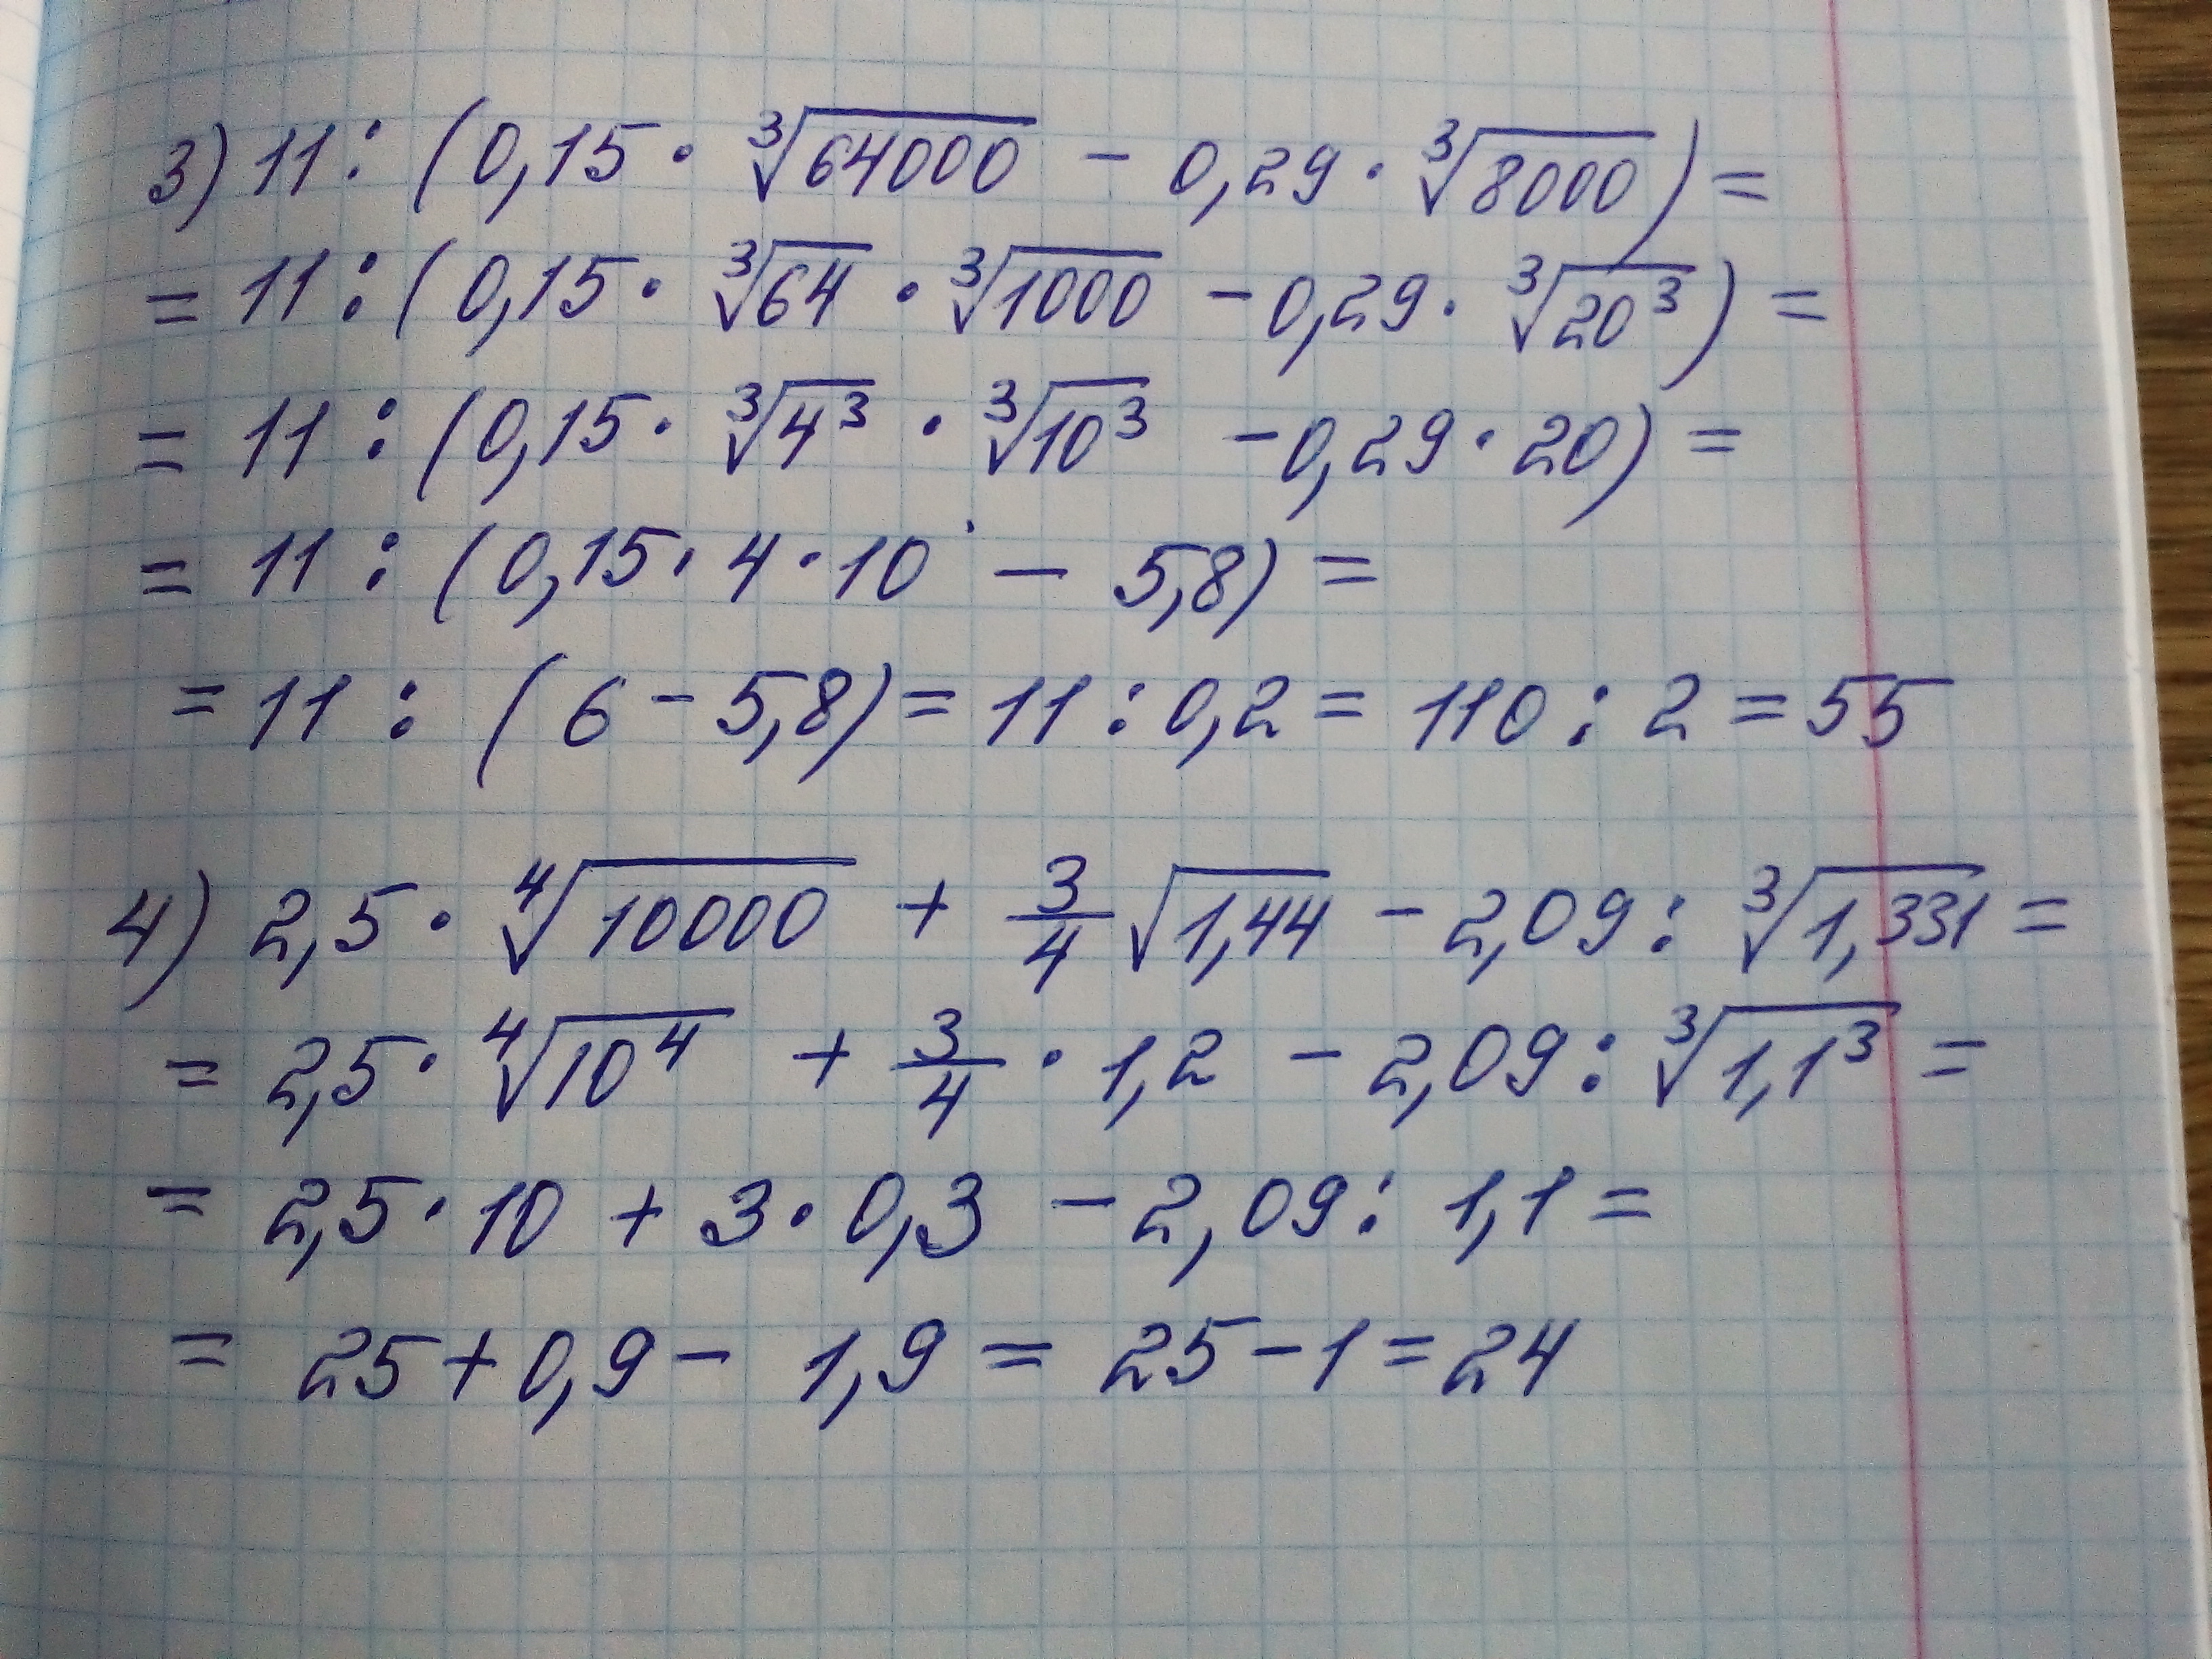 3) 11 : (0,15 · ∛64000 − 0,29 · ∛8000) =
= 11 : (0,15 · ∛64 · ∛1000 − 0,29 · ∛20³) =
= 11 : (0,15 · ∛4³ · ∛10³ − 0,29 · 20) =
= 11 : (0,15 · 4 · 10 − 5,8) =
= 11 : (6 − 5,8) = 11 : 0,2 = 110 : 2 = 55
4) 2,5 · ∜10000 + 3/4 √1,44 − 2,09 : ∛1,331 =
= 2,5 · ∜10⁴ + 3/4 · 1,2 − 2,09 : ∛1,1³ =
= 2,5 · 10 + 3 · 0,3 − 2,09 : 1,1 =
= 25 + 0,9 − 1,9 = 25 − 1 = 24